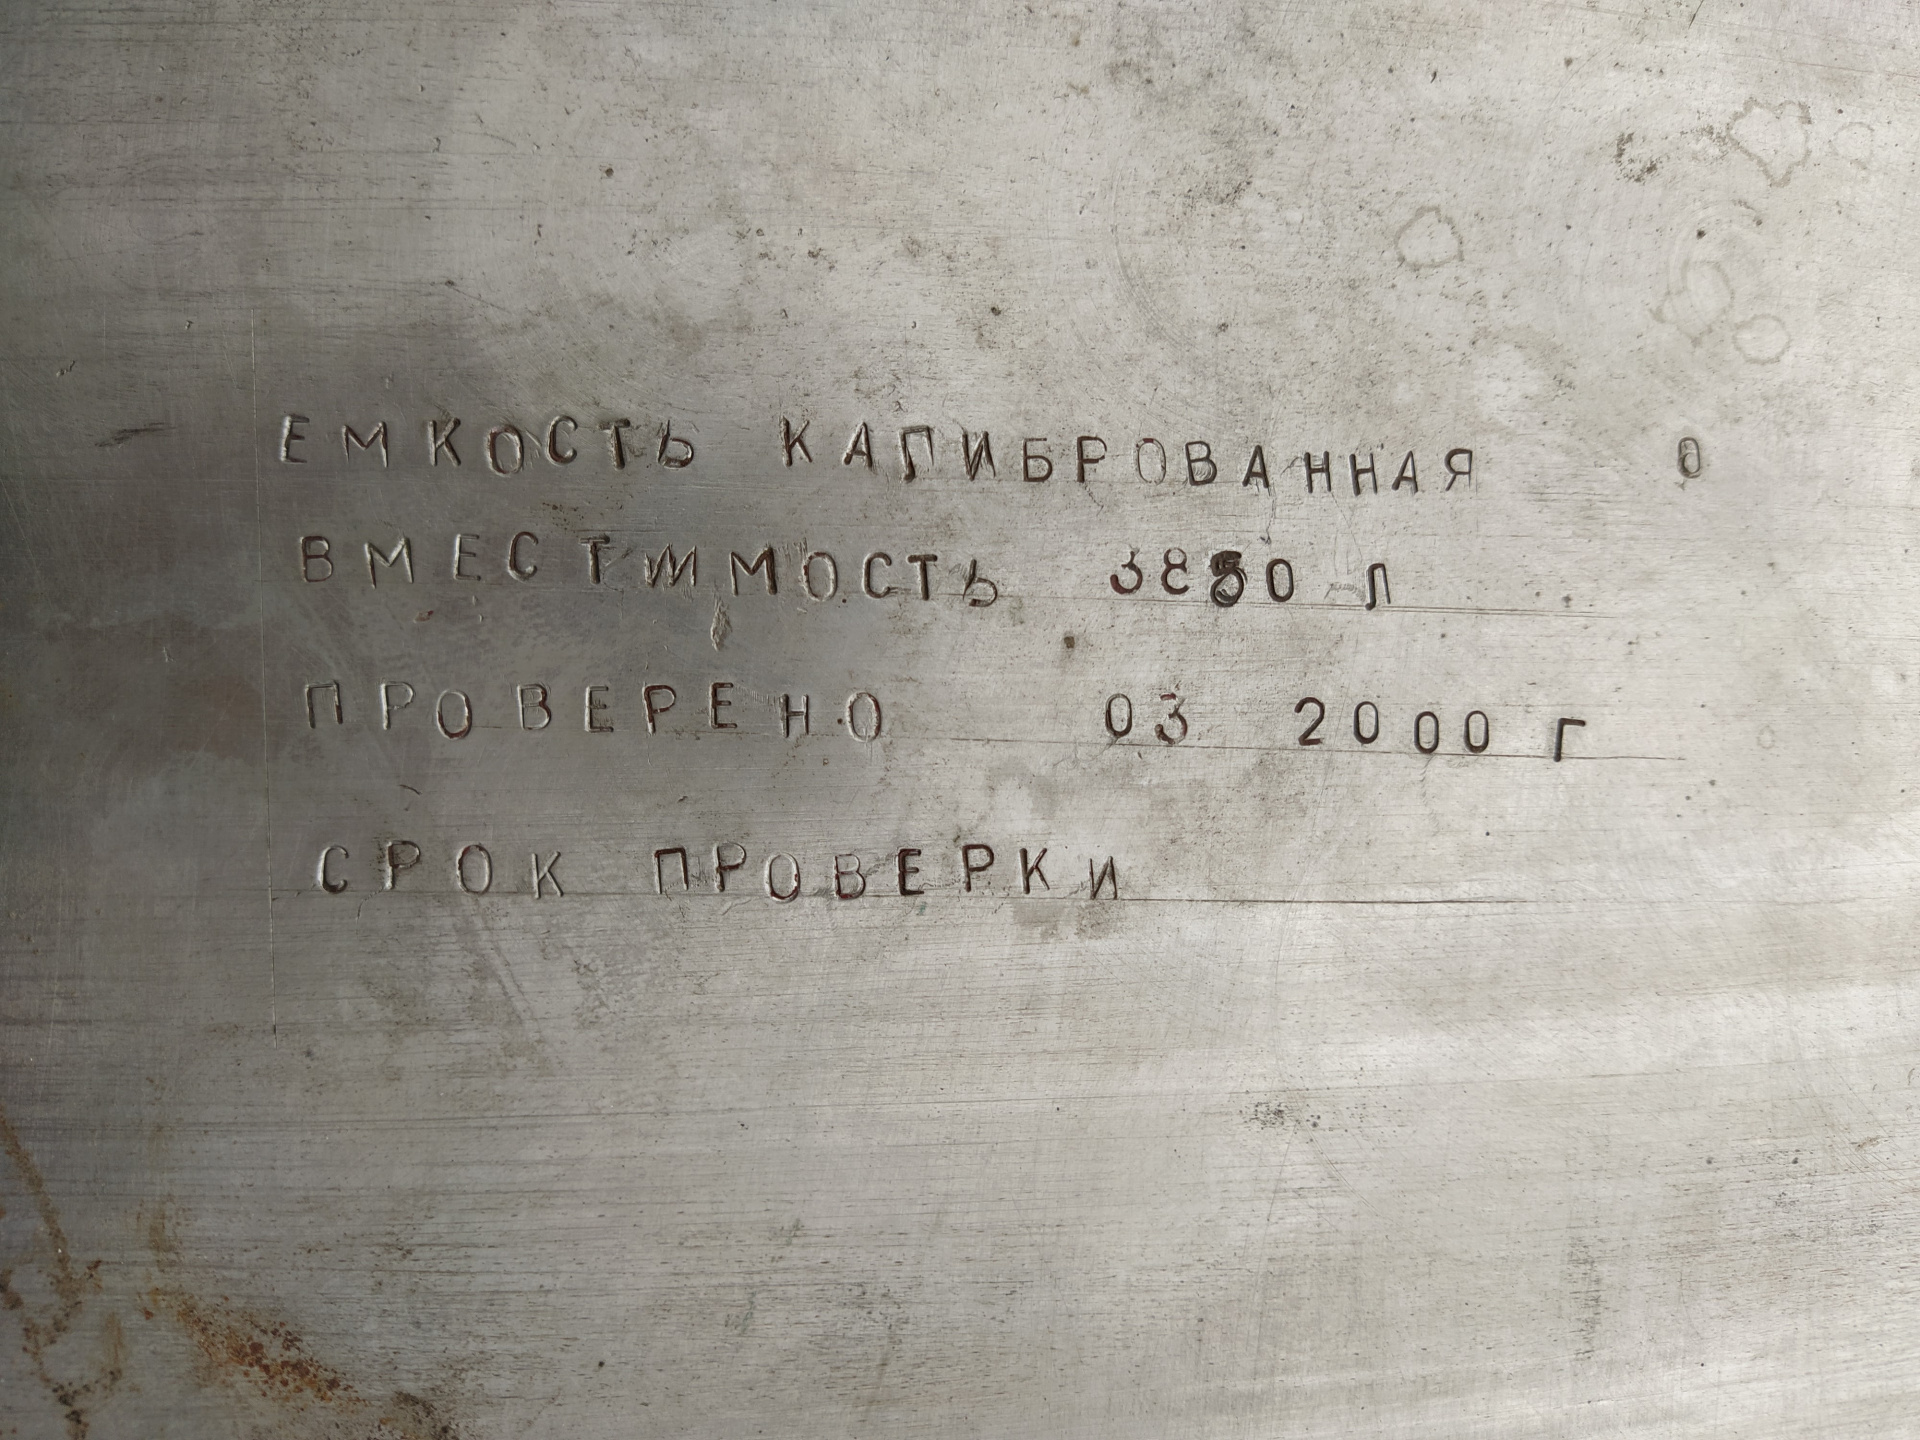 ЕМКОСТЬ КАПИБРОВАННАЯ 0
ВМЕСТИМОСТЬ 3850 Л
ПРОВЕРЕНО 03 2000 Г
СРОК ПРОВЕРКИ